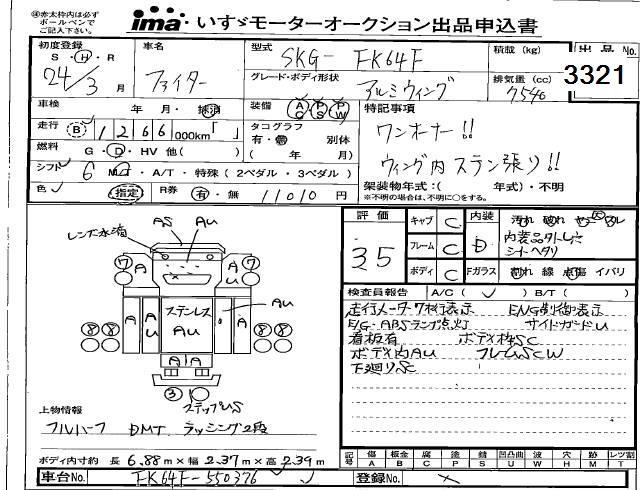 ㊟赤太枠内は必ず
ボールペンで
ご記入下さい。
ima いすゞモーターオークション出品申込書
初度登録
S・H・R
24/3月
車名
ファイター
型式
SKG-FK64F
グレード・ボディ形状
アルミウィング
積載(kg)
排気量(cc)
7540
出品No.
3321
車検 年・月・抹消
装備 AC PS PW
特記事項
ワンオーナー!!
ウィング内ステン張り!!
走行 B 1266 000km「 」
タコグラフ
有・無 別体
( 年 月)
燃料 G・D・HV 他( )
シフト 6 MT・A/T・特殊(2ペダル・3ペダル)
架装物年式:( 年式)・不明
※不明の場合は、不明に○をする。
色 指定 R券 有・無 11010円
評価
3.5
キャブ C
フレーム C
ボディ C
内装 D
汚れ 破れ
内装品外し穴
シートヘタリ
Fガラス 割れ 線 点傷 イバリ
検査員報告 A/C( ) B/T( )
走行メーター7桁表示 ENG制御表示
E/G・ABSランプ点灯 サイドガードU
看板有 ボディ枠SC
ボディ内AU フレームSCW
下廻りSC
レンズ水滴
AS
AU
7
A
A
AU
7
8 8
A A
ステンレス
AU
A A
AU
8 8
A A
3
ステップUS
上物情報
フルハーフ DMT. ラッシング2段
ボディ内寸約 長6.88m×幅2.37m×高2.39m
記号 傷 板金 腐 塗 錆 凹凸曲 波 穴 飛石 目 レツ割
A B C P S U W H M T
車台No. FK64F-550376
登録No.